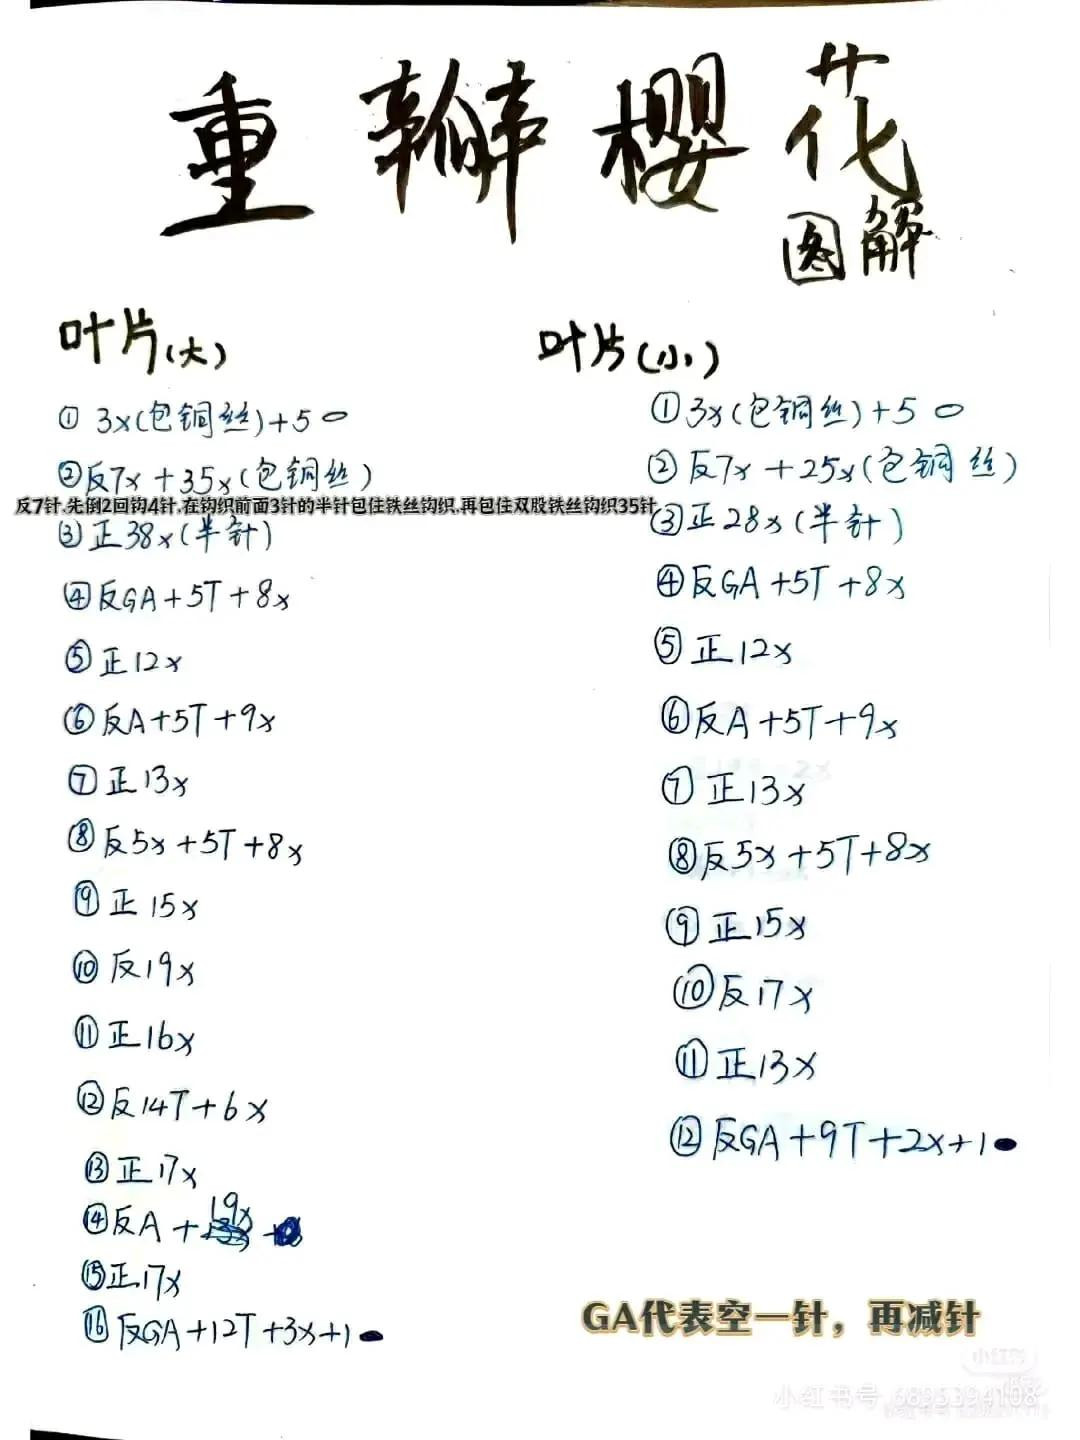 重瓣樱花
图解
叶片(大)
① 3x(包铜丝)+5 0
②反7x+35x(包铜丝)
反7针,先倒2回钩4针,在钩织前面3针的半针包住铁丝钩织,再包住双股铁丝钩织35针
③正38x(半针)
④反GA+5T+8x
⑤正12x
⑥反A+5T+9x
⑦正13x
⑧反5x+5T+8x
⑨正15x
⑩反19x
⑪正16x
⑫反14T+6x
⑬正17x
⑭反A+19x
⑮正17x
⑯反GA+12T+3x+1●
叶片(小)
①3x(包铜丝)+5 0
②反7x+25x(包铜丝)
③正28x(半针)
④反GA+5T+8x
⑤正12x
⑥反A+5T+9x
⑦正13x
⑧反5x+5T+8x
⑨正15x
⑩反17x
⑪正13x
⑫反GA+9T+2x+1●
GA代表空一针，再减针
小红书
小红书号 6895394108